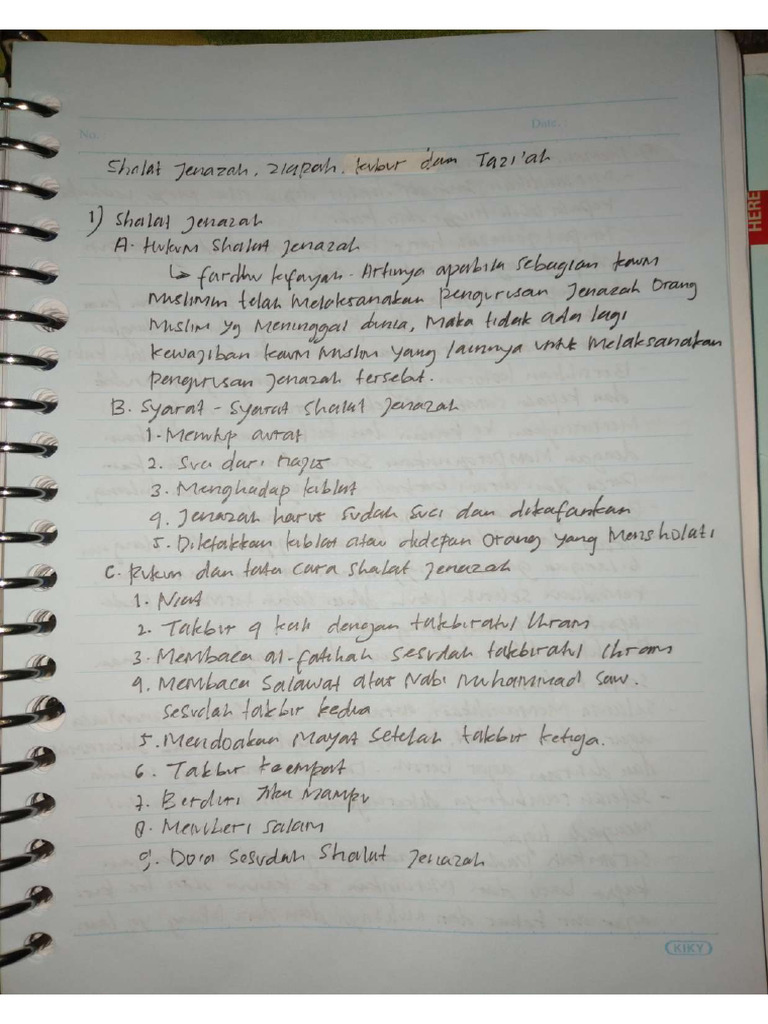 No.
Date.
Shalat Jenazah, ziarah kubur dan Tazi'ah
1) Shalat Jenazah
A. Hukum Shalat Jenazah
↳ fardhu kifayah. Artinya apabila sebagian kaum
Muslimin telah Melaksanakan pengurusan Jenazah Orang
Muslim yg Meninggal dunia, Maka tidak ada lagi
kewajiban kaum Muslim yang lainnya untuk Melaksanakan
Pengurusan Jenazah tersebut.
B. Syarat - Syarat Shalat Jenazah
1. Menutup aurat
2. Suci dari najis
3. Menghadap kiblat
4. Jenazah harus sudah suci dan dikafankan
5. Diletakkan kiblat atau didepan orang yang Mensholati
C. Rukun dan tata cara shalat Jenazah
1. Niat
2. Takbir 4 kali dengan takbiratul Ihram
3. Membaca al-fatihah sesudah takbiratul Ihram
4. Membaca Salawat atas Nabi Muhammad Saw.
sesudah takbir kedua
5. Mendoakan Mayat setelah takbir ketiga.
6. Takbir keempat
7. Berdiri Jika Mampu
8. Memberi salam
9. Doa Sesudah Shalat Jenazah
KIKY
HERE